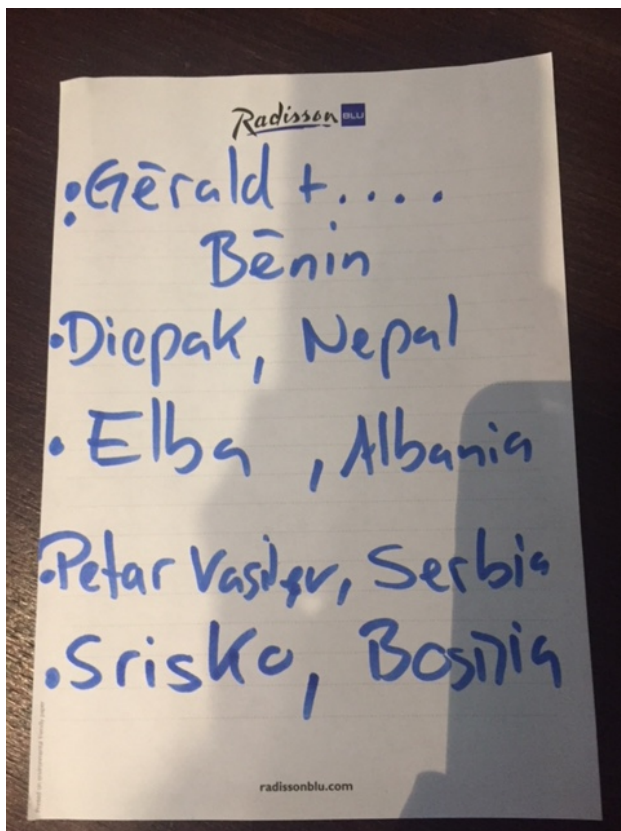 Radisson BLU
• Gērald + ....
Bēnin
• Diepak, Nepal
• Elba , Albania
• Petar Vasilev, Serbia
• Srisko, Bosnia
radissonblu.com